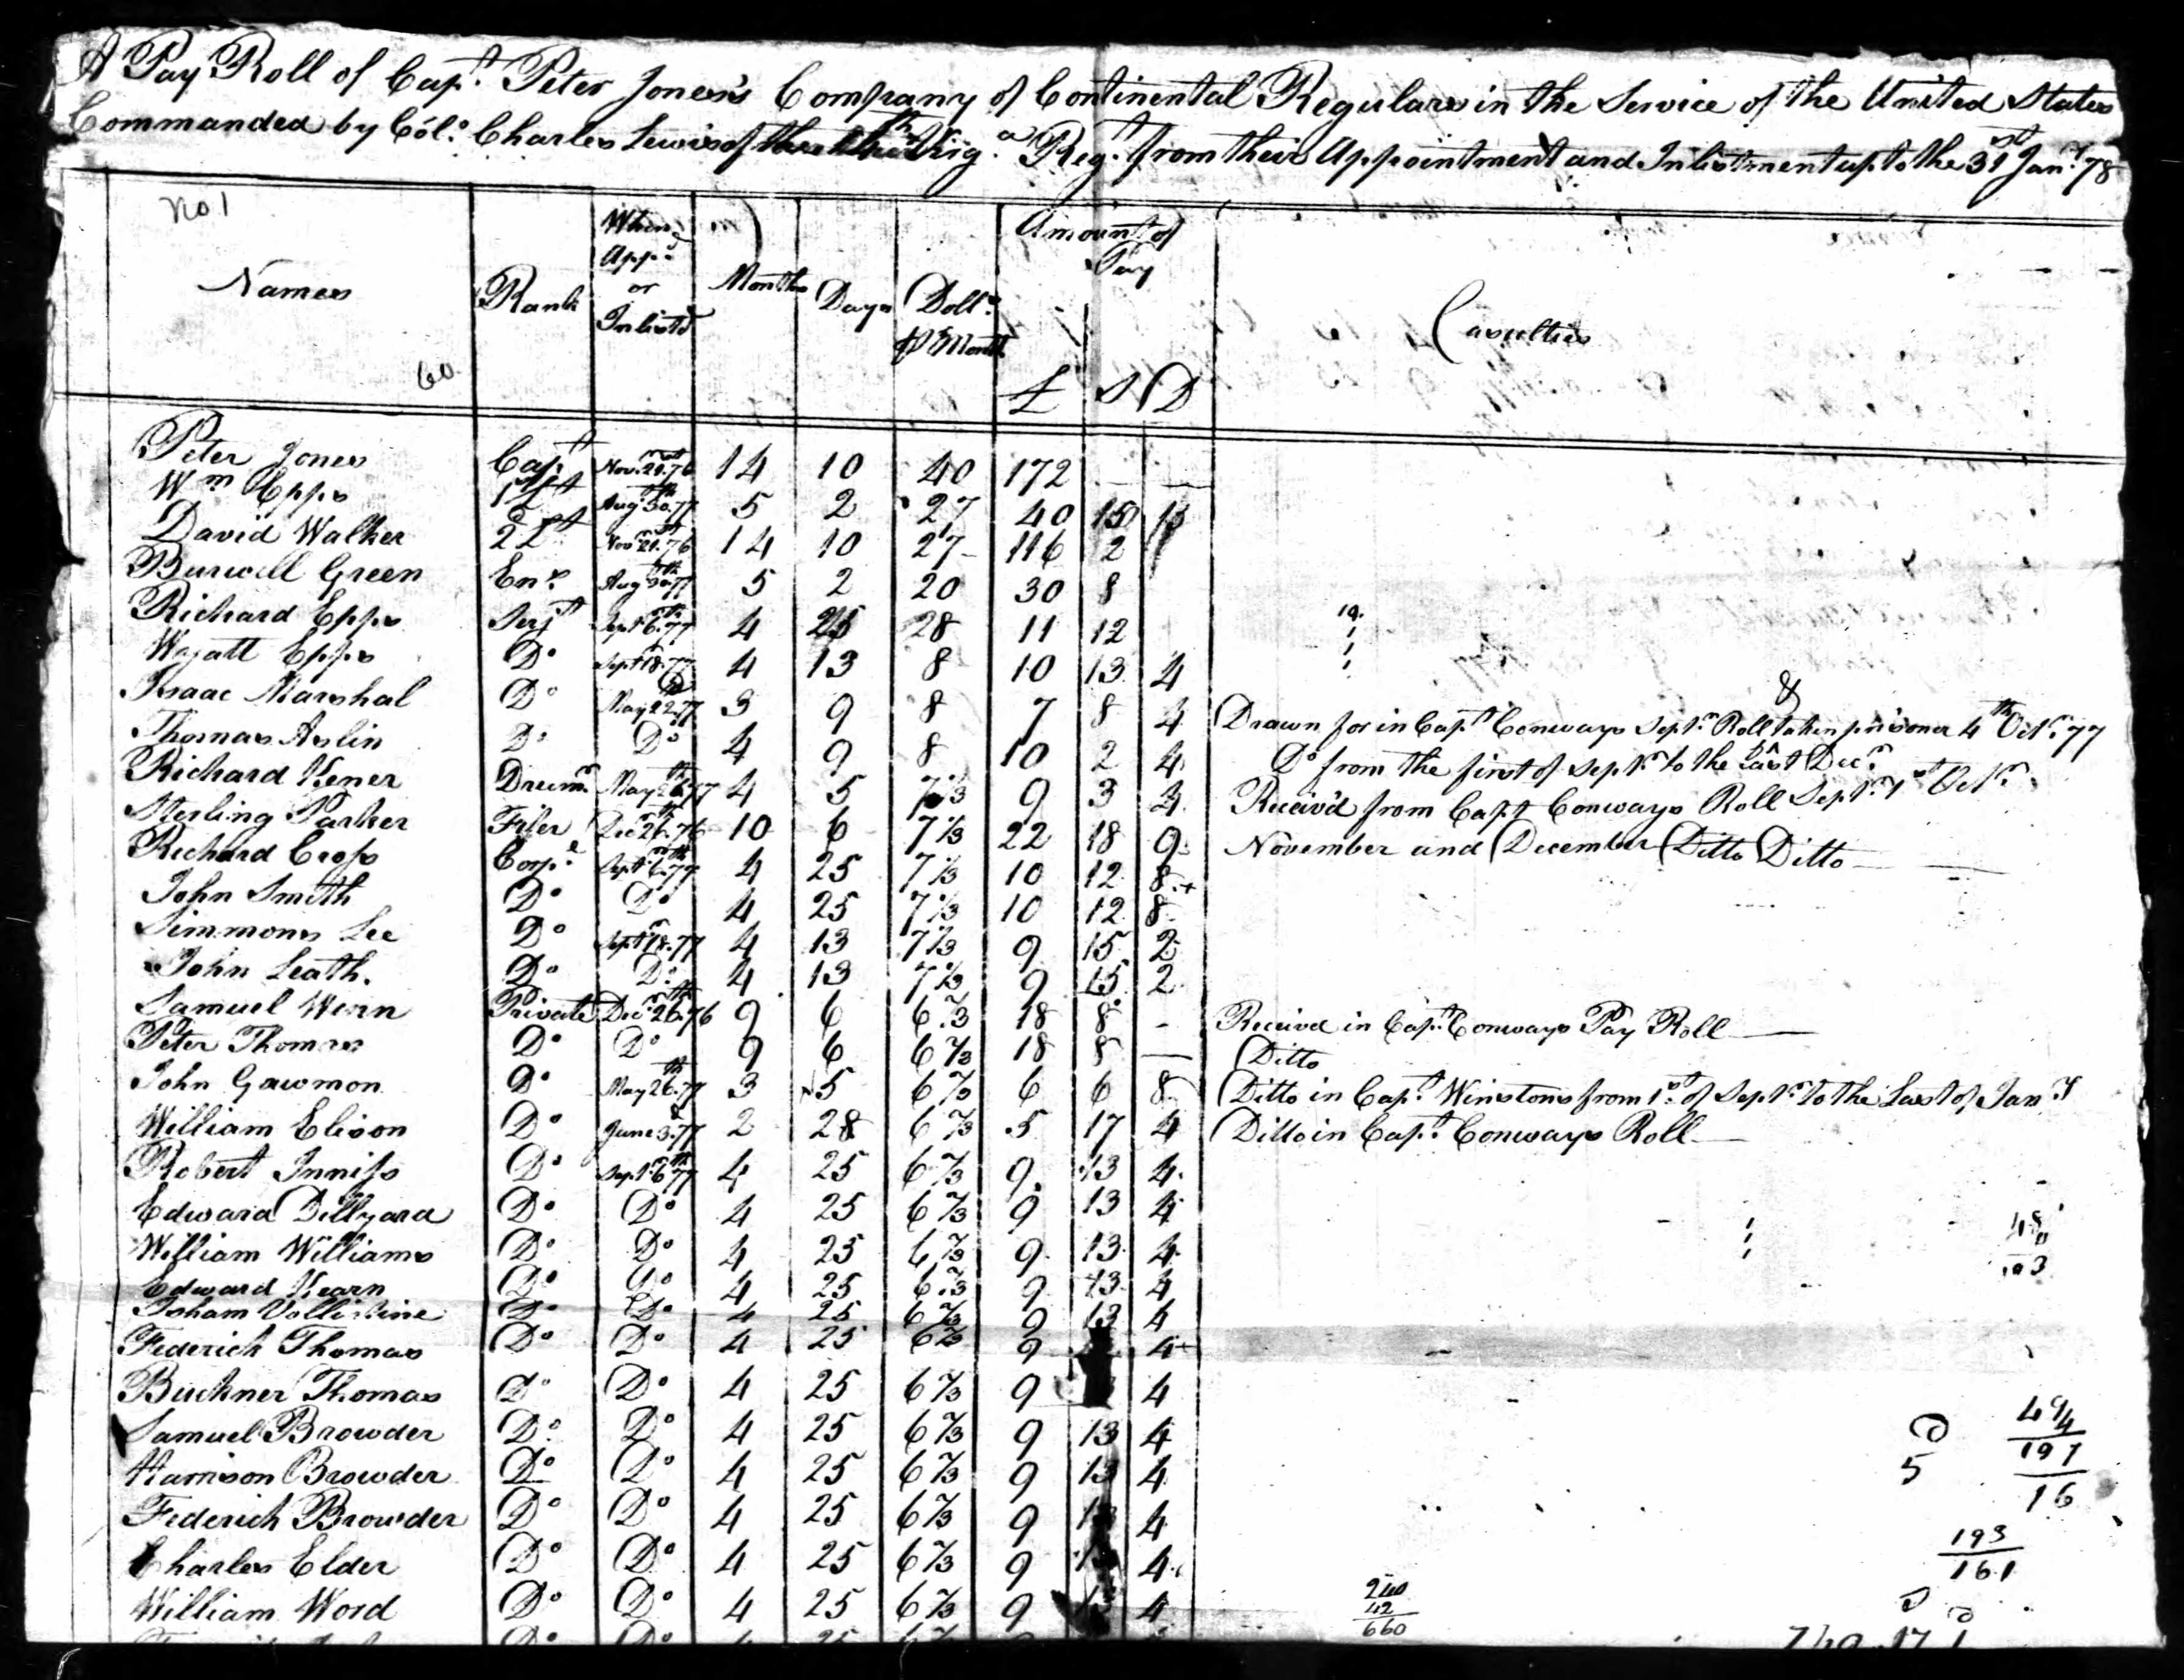 A Pay Roll of Capt. Peter Jones's Company of Continental Regulars in the Service of the United States
Commanded by Col.o Charles Lewis of the Virg.a Regt. from their Appointment and Inlistment up to the 31st Jany. 78
No 1
Names Rank When Appd. or Inlistd Months Days Dolls. P Month Amount of Pay £ S D Casulties
60
Peter Jones Capt. Novr. 21st. 76 14 10 40 172 — —
Wm Epps 1 Lt Augt 30th. 77 5 2 27 40 15
David Walker 2 Lt. Novr 21st. 76 14 10 27 116 2
Burwell Green Ens. Augt 30th. 77 5 2 20 30 8
Richard Epps Serjt Sept 6th. 77 4 25 28 11 12
Wayatt Epps Do Sept 18. 77 4 13 8 10 13 4
Isaac Marshal Do May 22. 77 3 9 8 7 8 4 Drawn for in Capt. Conways Septr. Roll & taken prisoner 4th Octr. 77
Thomas Aslin Do Do 4 9 8 10 2 4 Do from the first of Septr. to the Last Decr.
Richard Kener Drumr. May 26th 77 4 5 7 1/3 9 3 4 Receiv'd from Capt Conways Roll Septr. 1st Octr.
Sterling Parker Fifer Decr 26th. 76 10 6 7 1/3 22 18 9 November and December Ditto Ditto —
Richard Cross Corpl Septr 6th. 77 4 25 7 1/3 10 12 8
John Smith Do Do 4 25 7 1/3 10 12 8
Simmons Lee Do Septr 18. 77 4 13 7 1/3 9 15 2
John Leath. Do Do 4 13 7 1/3 9 15 2
Samuel Wern Private Decr 26th. 76 9 6 6 2/3 18 8 - Receivd in Capt. Conways Pay Roll —
Peter Thomas Do Do 9 6 6 2/3 18 8 — Ditto
John Gawmon Do May 26th. 77 3 5 6 2/3 6 6 8 Ditto in Capt. Winstons from 1st. of Septr. to the Last of Jany
William Elison Do June 3. 77 2 28 6 2/3 5 17 4 Ditto in Capt. Conways Roll —
Robert Inniss Do Septr 6th 77 4 25 6 2/3 9 13 4
Edward Dillyard Do Do 4 25 6 2/3 9 13 4
William Williams Do Do 4 25 6 2/3 9 13 4
Edward Kearn Do Do 4 25 6 2/3 9 13 4
Isham Do Do 4 25 6 2/3 9 13 4
Federich Thomas Do Do 4 25 6 2/3 9 4
Buckner Thomas Do Do 4 25 6 2/3 9 4
Samuel Browder Do Do 4 25 6 2/3 9 13 4
Harrison Browder Do Do 4 25 6 2/3 9 13 4
Federich Browder Do Do 4 25 6 2/3 9 13 4
Charles Elder Do Do 4 25 6 2/3 9 13 4
William Word Do Do 4 25 6 2/3 9 13 4
494
197
5
16
193
161
240
42
660